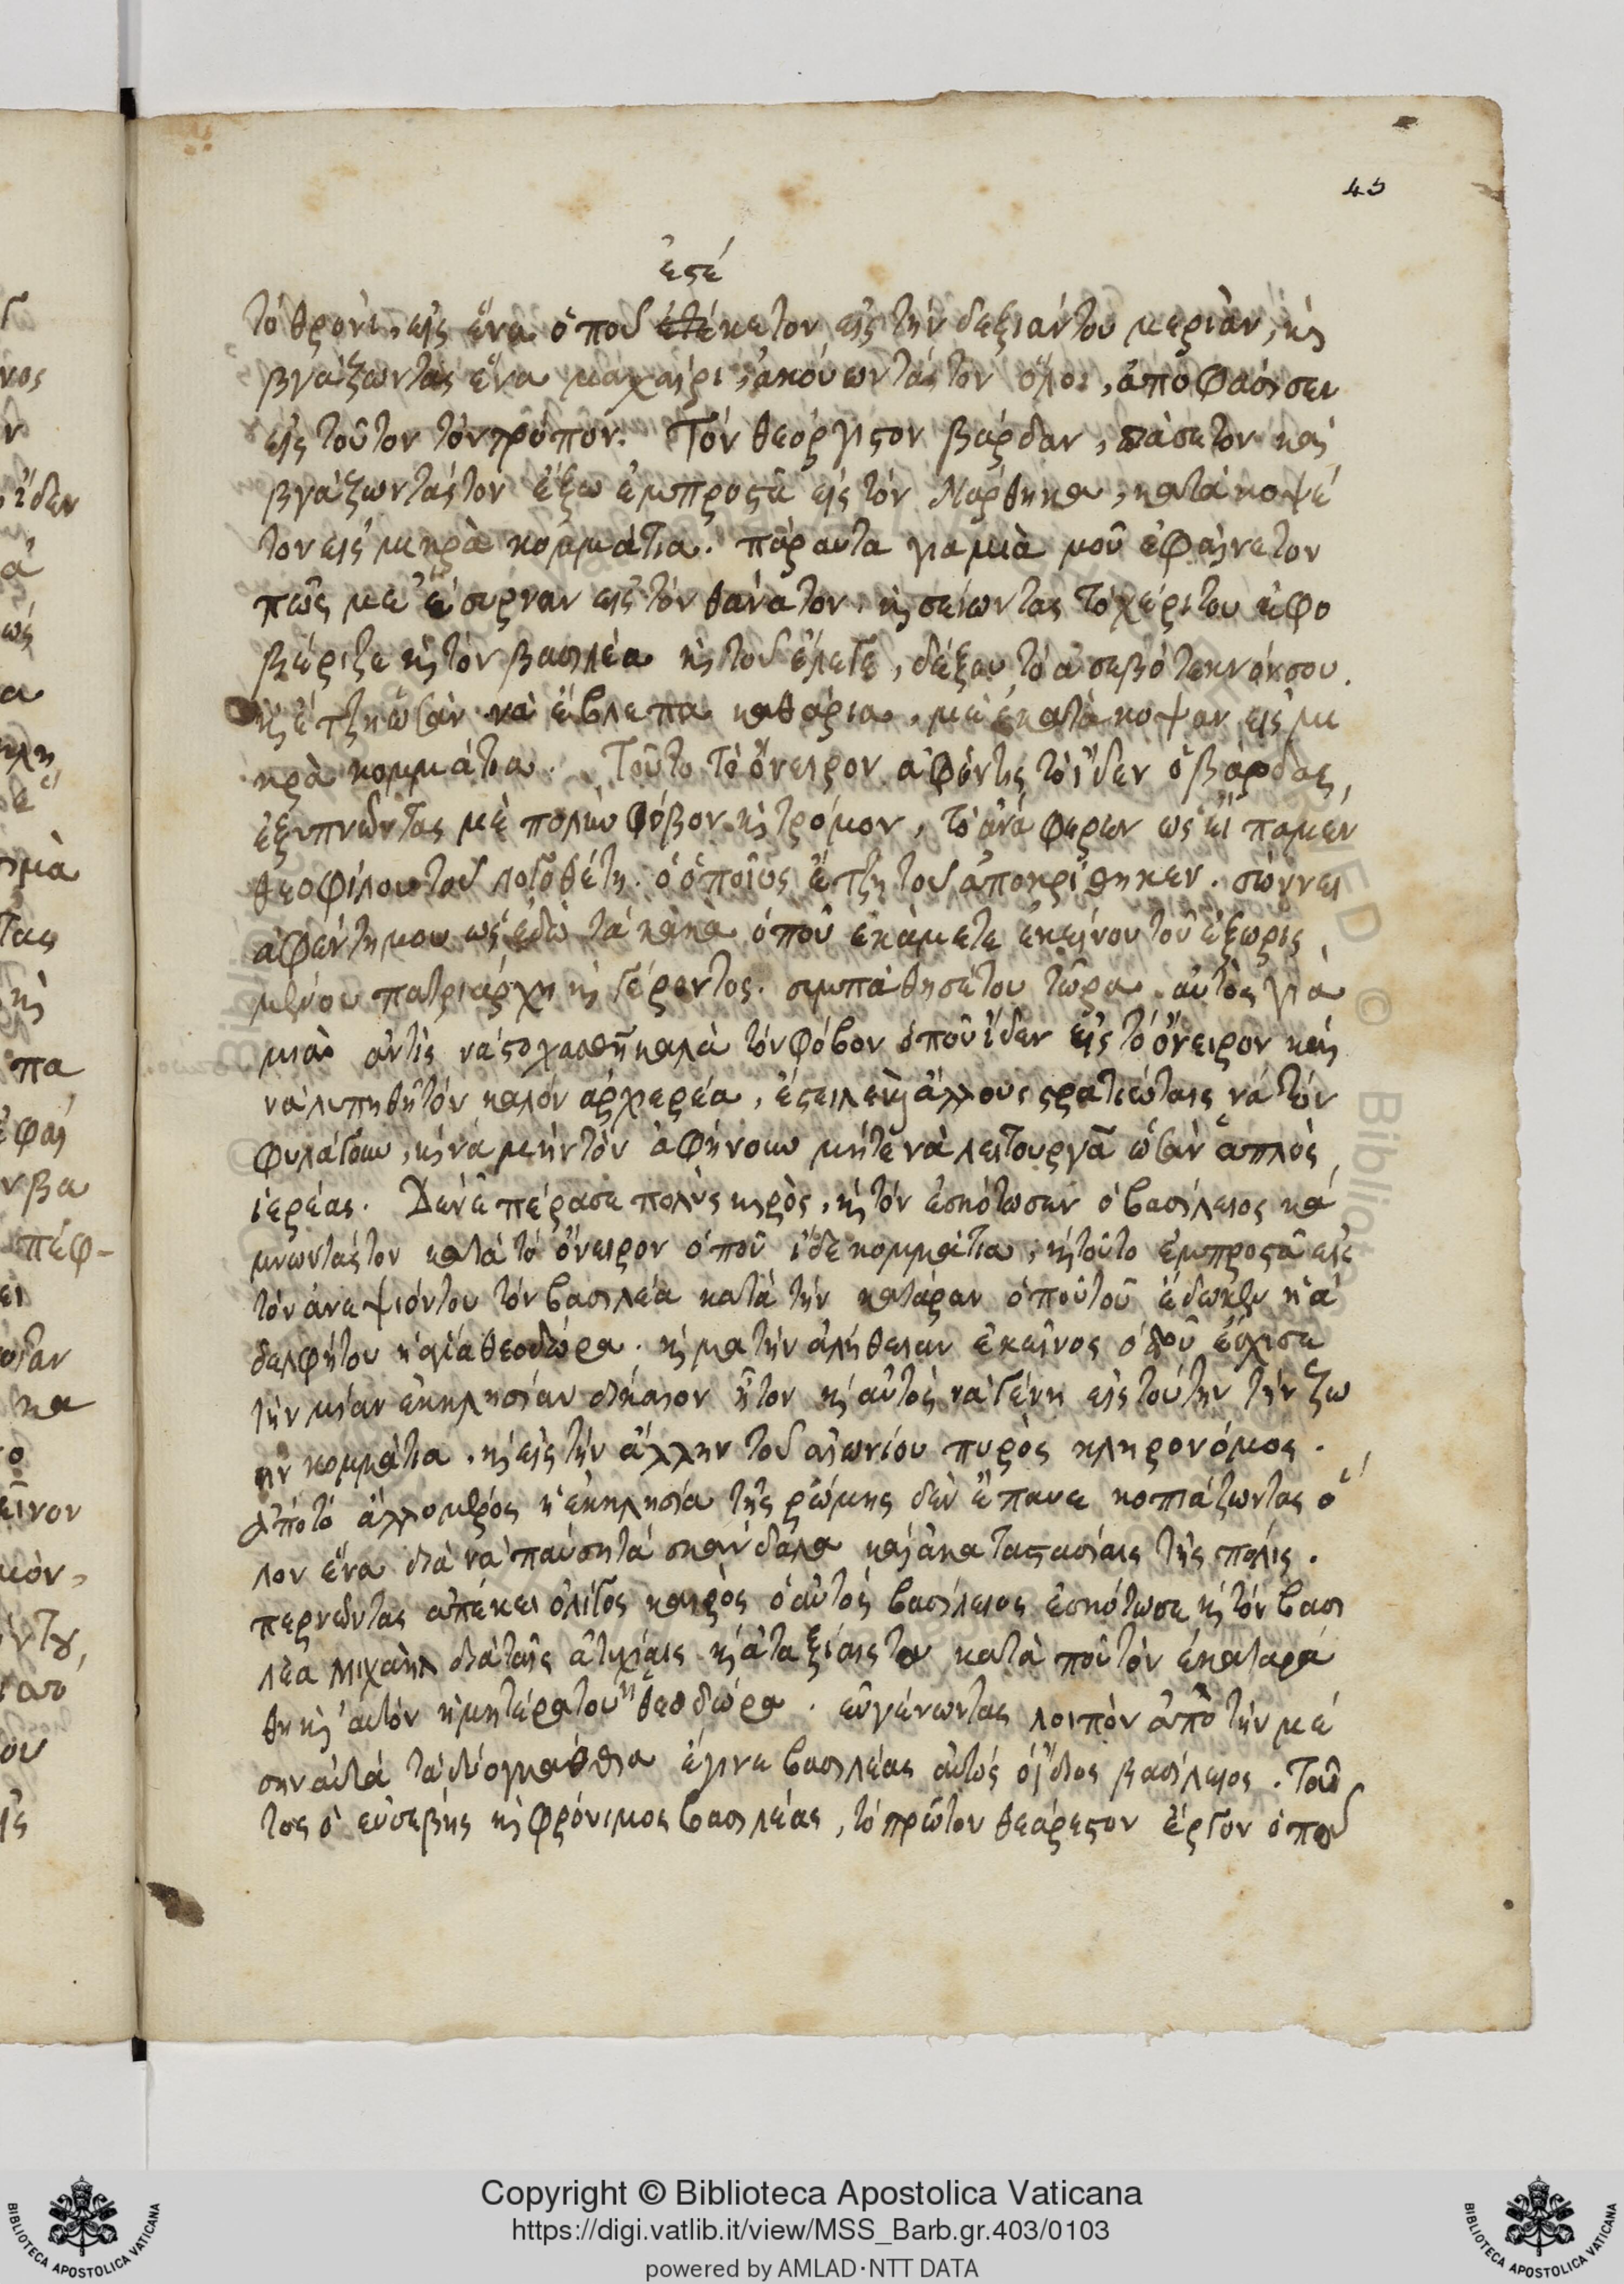 45
ἐςέ
τὸ θρονί, εἰς ἕνα ὁποῦ ἐτέκετον εἰς τὴν δεξιάντου μεριὰν, κὶ
βγάζωντας ἕνα μαχαίρι, ἀκούωντάςτον ὅλοι, ἀποφασίσει
εἰς τοῦτον τὸν τρόπον. Τὸν θεόργιςον βάρδαν, πιάσετον καὶ
βγάζωντάςτον ἔξω ἐμπροςὰ εἰς τὸν Νάρθηκα, κατακοψέ
τον εἰς μικρὰ κομμάτια. πάραυτα γιαμιὰ μοῦ ἐφαίνετον
πῶς με ἔσυρναν εἰς τὸν θάνατον. κὶ σείωντας τὸ χέριτου ἐφο
βέριζε κὶ τὸν βασιλέα κὶ τοῦ ἔλεγε, δέξου τὸ ἀσεβότεκνόνσου.
κὶ ἔτζη ὡσὰν νὰ ἔβλεπα καθάρια, μὲ ἐκατάκοψαν εἰς μι
κρὰ κομμάτια. Τοῦτο τὸ ὄνειρον ἀφέντις τὸ ἴδεν ὁ βάρδας,
ἐξυπνῶντας μὲ πολὺν φόβον κὶ τρόμον, τὸ ἀνάφερεν
θεοφίλου τοῦ λογοθέτη. ὁ ὁποῖος ἔτζη τοῦ ἀποκρίθηκεν. σώννει
ἀφέντημου ὡς ἐδῶ τὰ κακὰ ὁποῦ ἐκάμετε ἐκείνου τοῦ ἐξωρισ
μένου πατριάρχη κὶ γέροντος. συμπάθησέτου τώρα. αὐτὸς γιὰ
μιὰ ἀντὶς νὰ ςοχασθῆ καλὰ τὸν φόβον ὁποῦ ἴδεν εἰς τὸ ὄνειρον καὶ
νὰ λυπηθῆ τὸν καλὸν ἀρχιερέα, ἔςειλε κὶ ἄλλους ςρατιώταις νὰ τὸν
φυλάγουν, κὶ νὰ μὴν τὸν ἀφήνουν μήτε νὰ λειτουργᾶ ὡσὰν ἁπλὸς
ἱερέας. Δὲν ἐπέρασε πολὺς κιρὸς, κὶ τὸν ἐσκότωσεν ὁ βασίλειος κά
μνωντάςτον κατὰ τὸ ὄνειρον ὁποῦ ἴδε κομμάτια, κὶ τοῦτο ἐμπροςὰ εἰς
τὸν ἀνεψιόντου τὸν βασιλέα κατὰ τὴν κατάραν ὁποῦ τοῦ ἔδωκεν ἡ ἀ
δελφήτου ἡ ἁγία θεοδώρα. κὶ μὰ τὴν ἀλήθειαν ἐκεῖνος ὁποῦ ἔσχισε
τὴν μίαν ἐκκλησίαν δίκαιον ἦτον κὶ αὐτὸς νὰ γένη εἰς τούτην τὴν ζω
ὴν κομμάτια, κὶ εἰς τὴν ἄλλην τοῦ αἰωνίου πυρὸς κληρονόμος.
ἀπὸ τὸ ἄλλο μέρος ἡ ἐκκλησία τῆς ρώμης δὲν ἔπαυε κοπιάζωντας ὅ
λον ἕνα διὰ νὰ παύση τὰ σκάνδαλα καὶ ἀκαταςασίαις τῆς πόλις.
περνῶντας ἀπέκει ὀλίγος καιρὸς ὁ αὐτὸς βασίλειος ἐσκότωσε κὶ τὸν βασι
λέα Μιχαὴλ διὰ ταῖς ἀτυχίαις κὶ ἀταξίαις του κατὰ ποῦ τὸν ἐκαταρά
θη κὶ αὐτὸν ἡ μητέρατου ἡ θεοδώρα. εὐγένωντας λοιπὸν ἀπὸ τὴν μέ
σην αὐτὰ τὰ δύο ἔγινε βασιλέας αὐτὸς ὁ ἴδιος βασίλειος. Τοῦ
τος ὁ εὐσεβὴς κὶ φρόνιμος βασιλέας, τὸ πρῶτον θεάρεςον ἔργον ὁποῦ
Copyright © Biblioteca Apostolica Vaticana
https://digi.vatlib.it/view/MSS_Barb.gr.403/0103
powered by AMLAD·NTT DATA
BIBLIOTECA APOSTOLICA VATICANA
BIBLIOTECA APOSTOLICA VATICANA